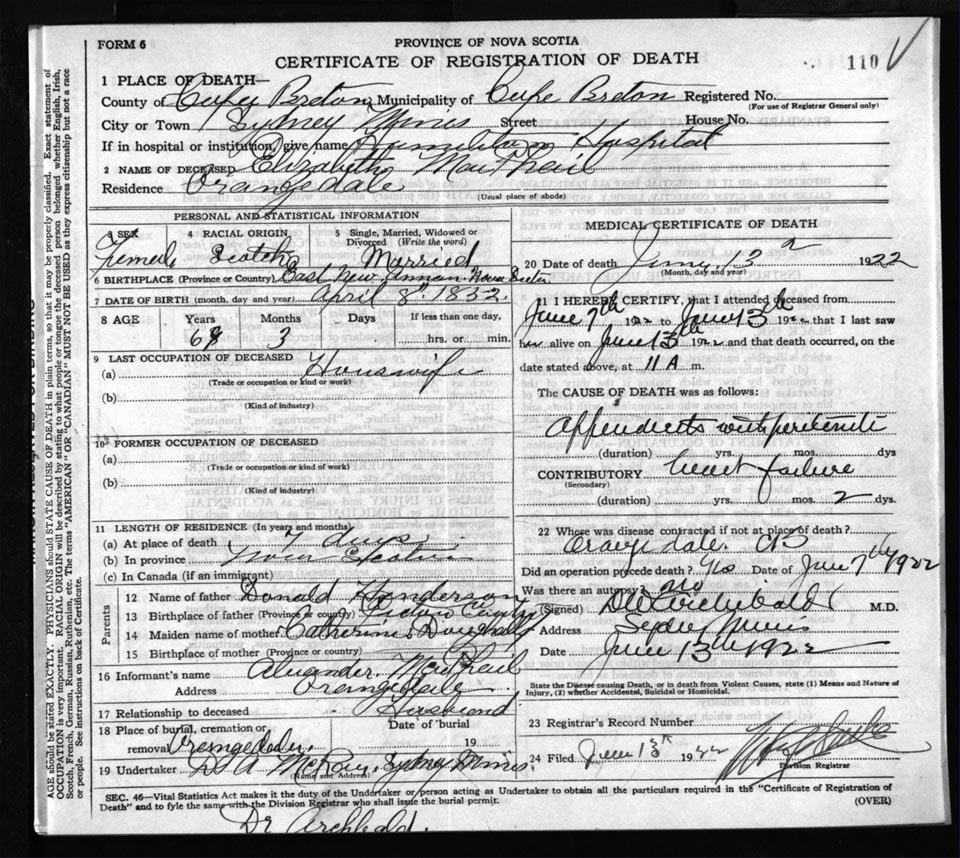 FORM 6
PROVINCE OF NOVA SCOTIA
CERTIFICATE OF REGISTRATION OF DEATH
110 V
1 PLACE OF DEATH—
County of Cape Breton Municipality of Cape Breton Registered No.
(For use of Registrar General only)
City or Town Sydney Mines Street House No.
If in hospital or institution, give name Hospital
2 NAME OF DECEASED Elizabeth MacPhail
Residence Orangedale
(Usual place of abode)
PERSONAL AND STATISTICAL INFORMATION
3 SEX 4 RACIAL ORIGIN 5 Single, Married, Widowed or Divorced (Write the word)
Female Scotch Married
6 BIRTHPLACE (Province or Country) East New Annan Nova Scotia
7 DATE OF BIRTH (month, day and year) April 8th 1832.
8 AGE Years Months Days If less than one day,
68 3 hrs. or min.
9 LAST OCCUPATION OF DECEASED
(a) Houswife
(Trade or occupation or kind or work)
(b)
(Kind of industry)
10 FORMER OCCUPATION OF DECEASED
(a)
(Trade or occupation or kind or work)
(b)
(Kind of industry)
11 LENGTH OF RESIDENCE (In years and months)
(a) At place of death 7 days
(b) In province Nova Scotia
(c) In Canada (if an immigrant)
Parents
12 Name of father Donald Henderson
13 Birthplace of father (Province or country) Pictou County
14 Maiden name of mother Catherine
15 Birthplace of mother (Province or country)
16 Informant's name Alexander MacPhail
Address Orangedale
17 Relationship to deceased Husband
18 Place of burial, cremation or removal Orangedale. Date of burial 19
19 Undertaker D A McKay, Sydney Mines
(Name and Address)
MEDICAL CERTIFICATE OF DEATH
20 Date of death June, 13 2 1922
(Month, day and year)
21 I HEREBY CERTIFY, that I attended deceased from
June 7th 1922 to June 13th 1922 that I last saw
her alive on June 13th 1922 and that death occurred, on the
date stated above, at 11 A m.
The CAUSE OF DEATH was as follows:
Appendicitis with peritonitis
(duration) yrs. mos. dys
CONTRIBUTORY Heart failure
(Secondary)
(duration) yrs. mos. 2 dys.
22 Where was disease contracted if not at place of death?
Orangedale. CB
Did an operation precede death? Yes Date of June 7th 1922
Was there an autopsy? No
(Signed) Archibald M.D.
Address Sydney Mines
Date June 13th 1922
State the Disease causing Death, or in death from Violent Causes, state (1) Means and Nature of
Injury, (2) whether Accidental, Suicidal or Homicidal.
23 Registrar's Record Number
24 Filed June 13th 1922
Division Registrar
SEC. 46—Vital Statistics Act makes it the duty of the Undertaker or person acting as Undertaker to obtain all the particulars required in the "Certificate of Registration of
Death" and to fyle the same with the Division Registrar who shall issue the burial permit.
(OVER)
Dr Archbald.
AGE should be stated EXACTLY. PHYSICIANS should STATE CAUSE OF DEATH in plain terms, so that it may be properly classified. Exact statement of
OCCUPATION is very important. RACIAL ORIGIN will be described by stating to what people or tongue the deceased person belonged whether English, Irish,
Scotch, French, German, Russian, Ruthenian, etc. The terms "AMERICAN" OR "CANADIAN" MUST NOT BE USED as they express citizenship but not a race
or people. See instructions on back of Certificate.